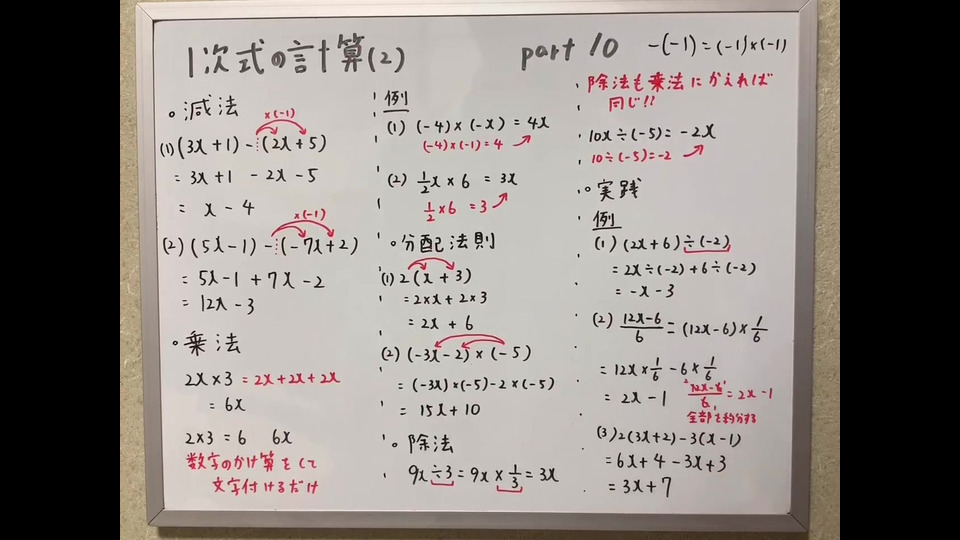 1次式の計算(2) part 10 -(-1)=(-1)×(-1)
。減法
×(-1)
(1)(3x+1)-(2x+5)
=3x+1 -2x-5
= x-4
×(-1)
(2)(5x-1)-(-7x+2)
=5x-1+7x-2
=12x-3
。乗法
2x×3=2x+2x+2x
=6x
2×3=6 6x
数字のかけ算をして
文字付けるだけ
例
(1) (-4)×(-x)=4x
(-4)×(-1)=4
(2) 1/2x×6 =3x
1/2×6=3
。分配法則
(1) 2(x+3)
=2×x+2×3
=2x+6
(2)(-3x-2)×(-5)
=(-3x)×(-5)-2×(-5)
=15x+10
。除法
9x÷3=9x×1/3=3x
除法も乗法にかえれば
同じ!!
10x÷(-5)=-2x
10÷(-5)=-2
。実践
例
(1)(2x+6)÷(-2)
=2x÷(-2)+6÷(-2)
=-x-3
(2) 12x-6/6=(12x-6)×1/6
=12x×1/6-6×1/6
=2x-1
=2x-1
全部を約分する
(3)2(3x+2)-3(x-1)
=6x+4-3x+3
=3x+7